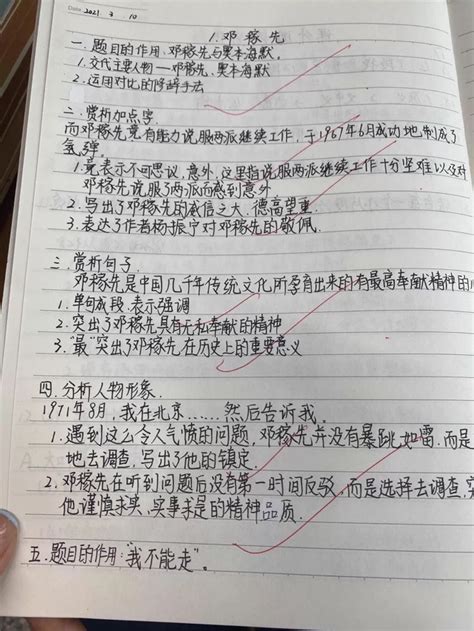 Date 2021. 3 10
1. 邓稼先
一. 题目的作用: 邓稼先与奥本海默.
1. 交代主要人物—邓稼先、奥本海默
2. 运用对比的修辞手法
二. 赏析加点字.
而邓稼先竟有能力说服两派继续工作, 于1967年6月成功地制成了
氢弹.
1. 竟表示不可思议, 意外, 这里指说服两派继续工作十分坚难以及对
邓稼先说服两派而感到意外
2. 写出了邓稼先的威信之大, 德高望重.
3. 表达了作者杨振宁对邓稼先的敬佩.
三. 赏析句子
邓稼先是中国几千年传统文化所孕育出来的有最高奉献精神的
1. 单句成段, 表示强调
2. 突出了邓稼先具有无私奉献的精神
3. "最"突出了邓稼先在历史上的重要意义
四. 分析人物形象.
1971年8月, 我在北京......然后告诉我.
1. 遇到这么令人气愤的问题, 邓稼先并没有暴跳如雷, 而是
地去调查, 写出了他的镇定.
2. 邓稼先在听到问题后没有第一时间反驳, 而是选择去调查,
他谨慎求实, 实事求是的精神品质.
五. 题目的作用: "我不能走".